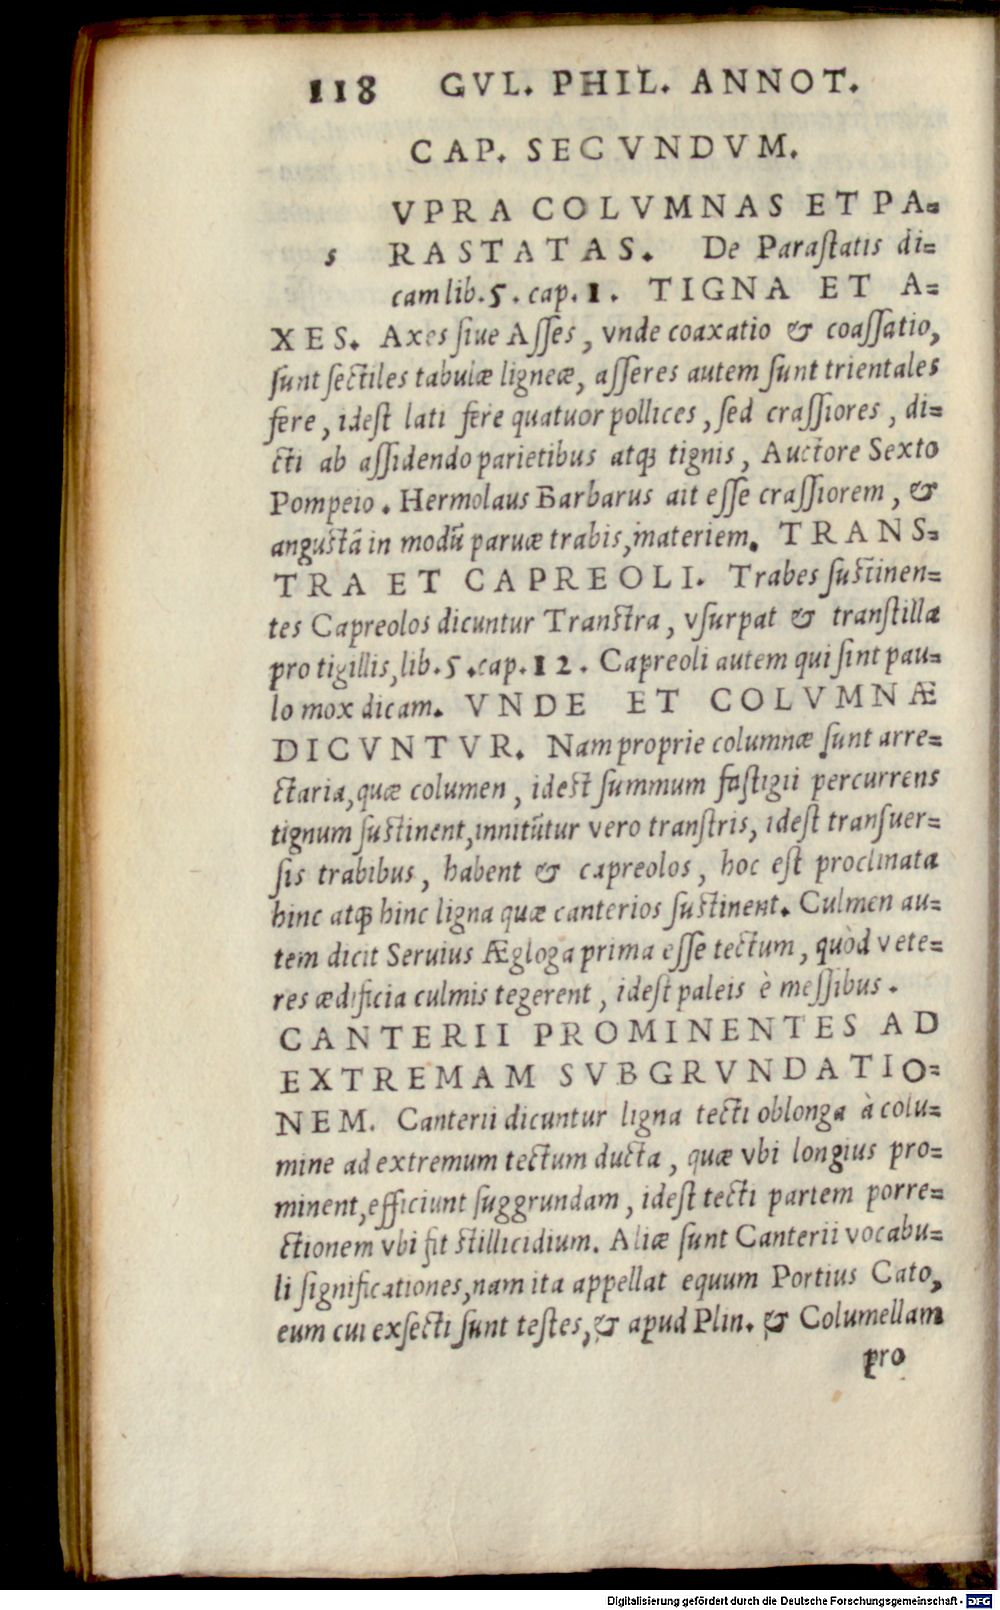 118 GVL. PHIL. ANNOT.
CAP. SECVNDVM.
VPRA COLVMNAS ET PA=
s RASTATAS. De Paraſtatis di=
cam lib. 5. cap. 1. TIGNA ET A=
XES. Axes ſiue Aſſes, vnde coaxatio & coaſſatio,
ſunt ſectiles tabulæ ligneæ, aſſeres autem ſunt trientales
fere, ideſt lati fere quatuor pollices, ſed craſſiores, di=
cti ab aſſidendo parietibus atqꝫ tignis, Auctore Sexto
Pompeio. Hermolaus Barbarus ait eſſe craſſiorem, &
anguſtā in modū paruæ trabis, materiem. TRANS=
TRA ET CAPREOLI. Trabes ſuſtinen=
tes Capreolos dicuntur Tranſtra, vſurpat & tranſtilla
pro tigillis, lib. 5. cap. 12. Capreoli autem qui ſint pau=
lo mox dicam. VNDE ET COLVMNÆ
DICVNTVR. Nam proprie columnæ ſunt arre=
ctaria, quæ columen, ideſt ſummum faſtigii percurrens
tignum ſuſtinent, innitūtur vero tranſtris, ideſt tranſuer=
ſis trabibus, habent & capreolos, hoc eſt proclinata
hinc atqꝫ hinc ligna quæ canterios ſuſtinent. Culmen au=
tem dicit Seruius Ægloga prima eſſe tectum, quòd vete=
res ædificia culmis tegerent, ideſt paleis è meſſibus.
CANTERII PROMINENTES AD
EXTREMAM SVBGRVNDATIO=
NEM. Canterii dicuntur ligna tecti oblonga à colu=
mine ad extremum tectum ducta, quæ vbi longius pro=
minent, efficiunt ſuggrundam, ideſt tecti partem porre=
ctionem vbi fit ſtillicidium. Aliæ ſunt Canterii vocabu=
li ſignificationes, nam ita appellat equum Portius Cato,
eum cui exſecti ſunt teſtes, & apud Plin. & Columellam
pro
Digitalisierung gefördert durch die Deutsche Forschungsgemeinschaft - DFG